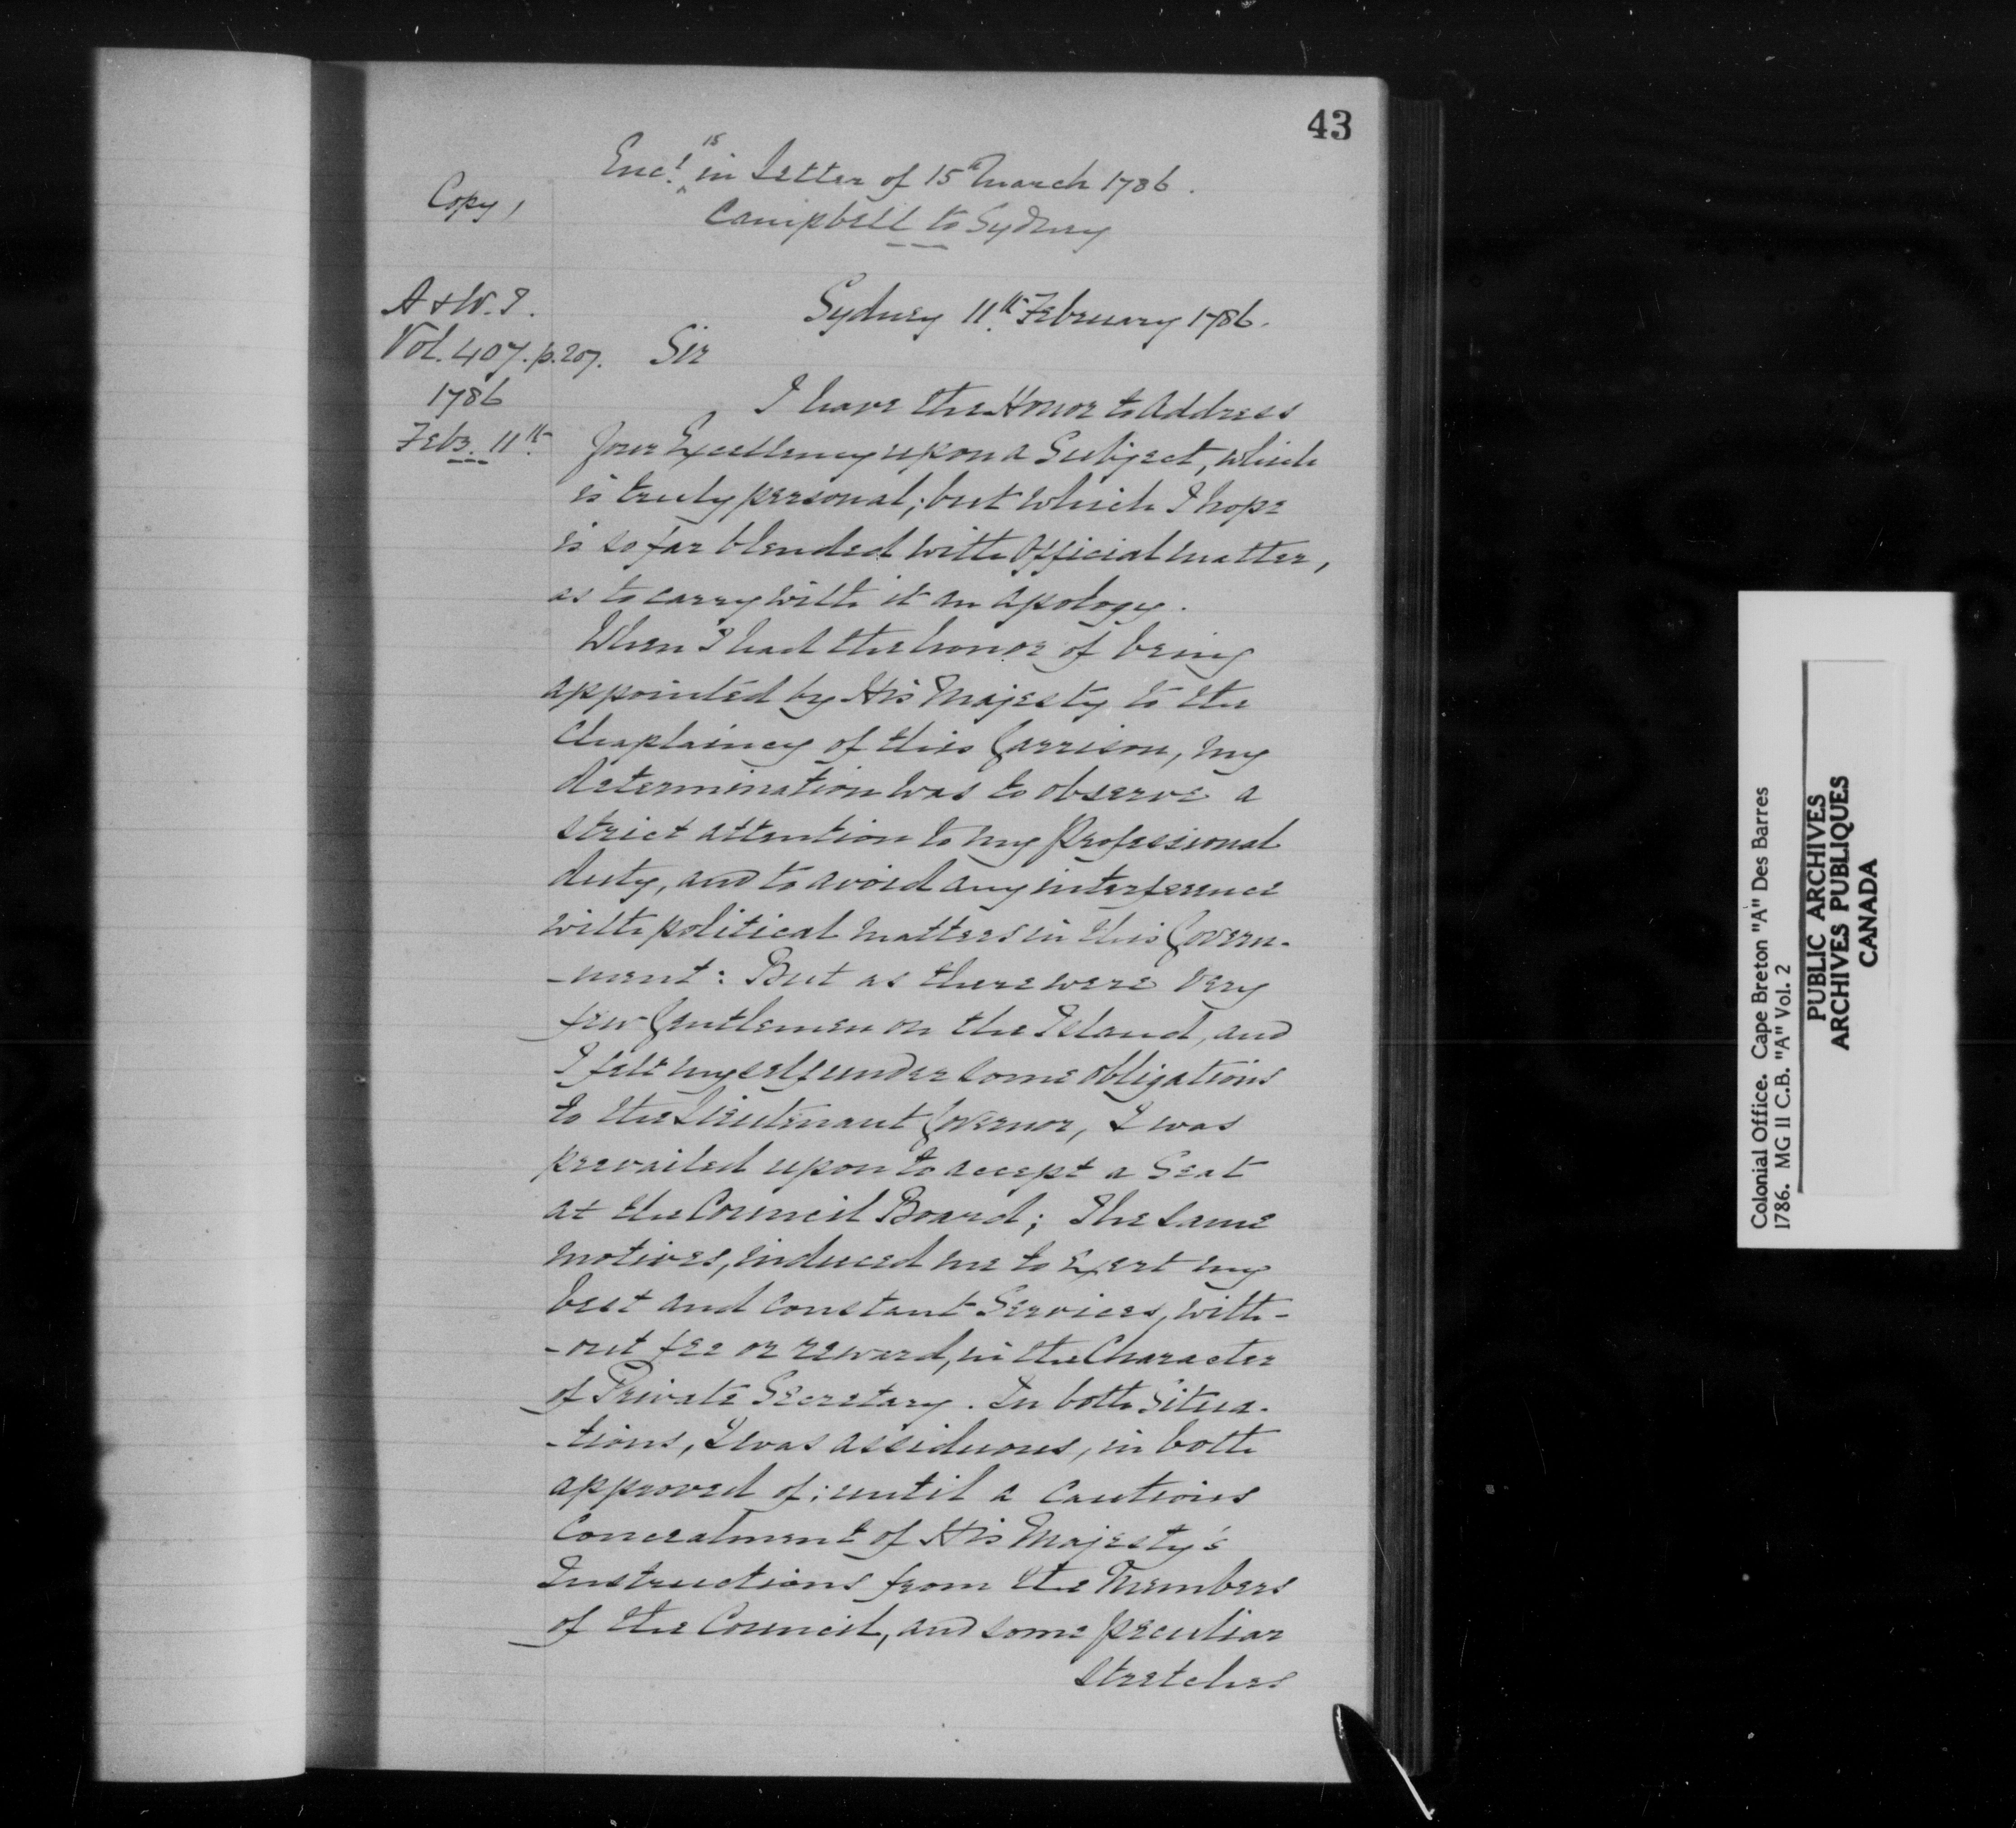 43
Encl. 15 in Letter of 15th March 1786.
Campbell to Sydney
Copy,
A & W. I.
Vol. 407. p. 207.
1786
Feb3. 11th
Sydney 11th February 1786.
Sir
I have the Honor to Address
Your Excellency upon a Subject, which
is truly personal; but which I hope
is so far blended with Official matter,
as to carry with it an apology.
When I had the honor of being
appointed by His Majesty to the
Chaplaincy of this Garrison, my
determination was to observe a
strict attention to my Professional
duty, and to avoid any interference
with political matters in this Govern-
-ment: But as there were very
few Gentlemen on the Island, and
I felt myself under some obligations
to the Lieutenant Governor, I was
prevailed upon to accept a Seat
at the Council Board; The same
motives, induced me to Exert my
best and constant Services, with-
-out fee or reward, in the Character
of Private Secretary. In both Situa-
-tions, I was assiduous, in both
approved of; until a cautious
Concealment of His Majesty's
Instructions from the Members
of the Council, and some peculiar
stretches
Colonial Office. Cape Breton "A" Des Barres
1786. MG II C.B. "A" Vol. 2
PUBLIC ARCHIVES
ARCHIVES PUBLIQUES
CANADA